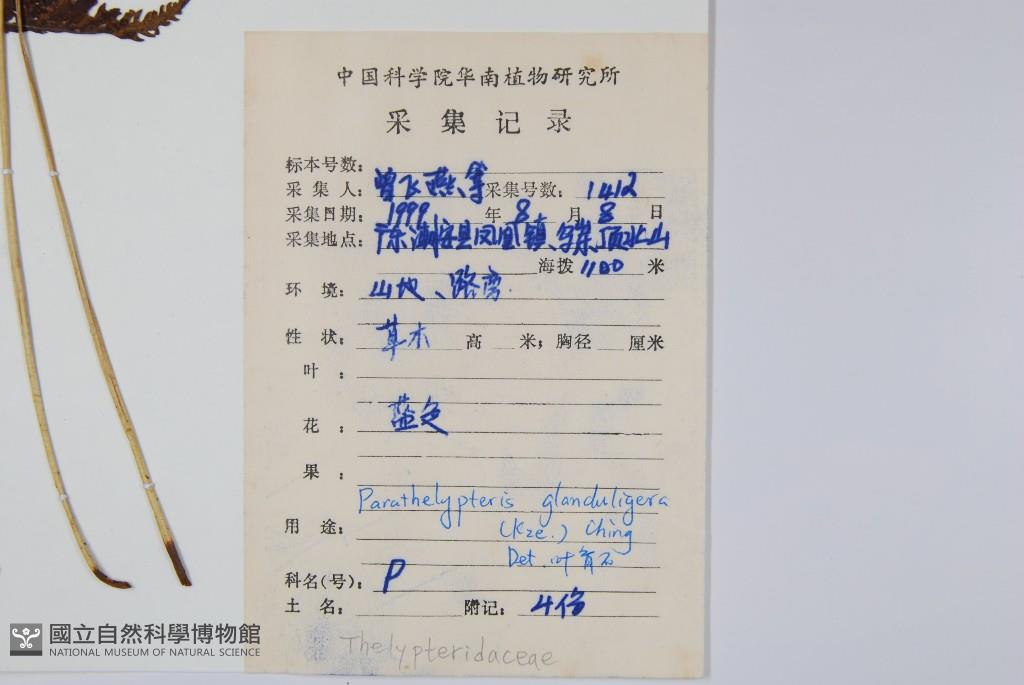 中国科学院华南植物研究所
采集记录
标本号数:
采集人: 曾飞燕、等 采集号数: 1412
采集日期: 1999 年 8 月 8 日
采集地点: 广东潮安县凤凰镇、乌崬顶
海拨 1100 米
环境: 山地、路旁
性状: 草木 高 米; 胸径 厘米
叶:
花: 蓝色
果:
Parathelypteris glanduligera
(Kze.) Ching
用途:
Det. 叶育石
科名(号): P
土名: 附记: 4份
Thelypteridaceae
國立自然科學博物館
NATIONAL MUSEUM OF NATURAL SCIENCE